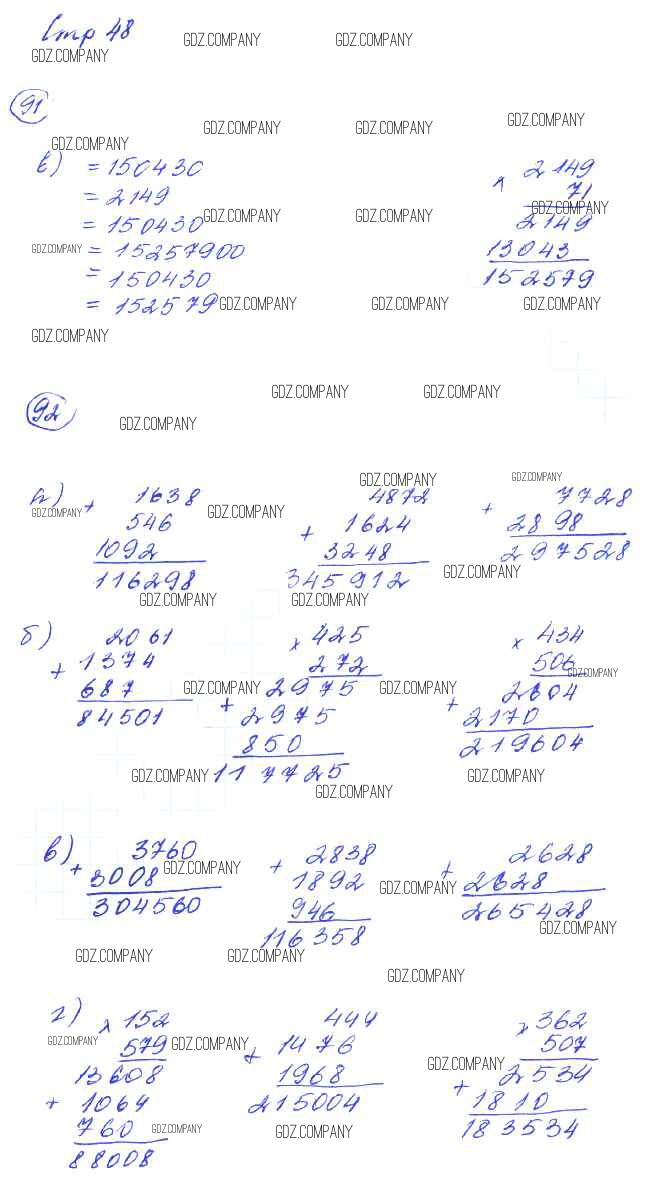 Стр 48
GDZ.COMPANY GDZ.COMPANY GDZ.COMPANY
91
GDZ.COMPANY GDZ.COMPANY GDZ.COMPANY GDZ.COMPANY
в) = 150430
= 2149
= 150430
= 15257900
= 150430
= 152579
× 2149
71
2149
13043
152579
GDZ.COMPANY GDZ.COMPANY GDZ.COMPANY
GDZ.COMPANY
GDZ.COMPANY GDZ.COMPANY GDZ.COMPANY
GDZ.COMPANY
GDZ.COMPANY GDZ.COMPANY
92
GDZ.COMPANY
GDZ.COMPANY GDZ.COMPANY
а) + 1638
546
1092
116298
4872
+ 1624
3248
345912
+ 7728
2898
297528
GDZ.COMPANY GDZ.COMPANY GDZ.COMPANY
GDZ.COMPANY GDZ.COMPANY
б) 2061
+ 1374
687
84501
× 425
272
2975
+ 2975
850
117725
× 434
506
2604
+ 2170
219604
GDZ.COMPANY
GDZ.COMPANY GDZ.COMPANY
GDZ.COMPANY GDZ.COMPANY
GDZ.COMPANY
в) 3760
+ 3008
304560
+ 2838
1892
946
116358
+ 2628
2628
265428
GDZ.COMPANY GDZ.COMPANY
GDZ.COMPANY
GDZ.COMPANY GDZ.COMPANY
GDZ.COMPANY
г) × 152
579
13608
+ 1064
760
88008
444
+ 1476
1968
215004
× 362
507
2534
+ 1810
183534
GDZ.COMPANY GDZ.COMPANY GDZ.COMPANY
GDZ.COMPANY GDZ.COMPANY